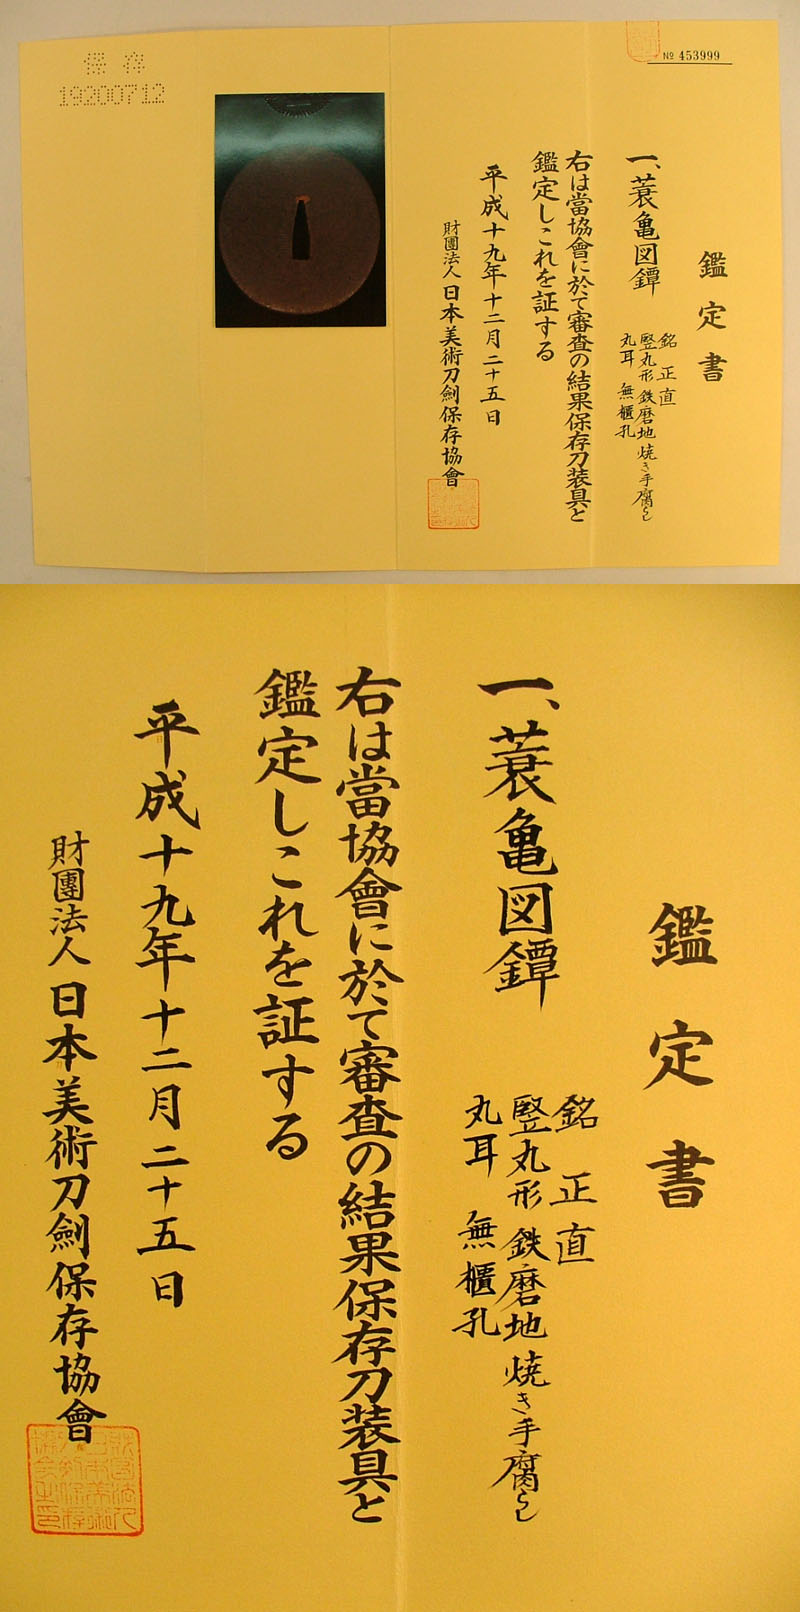 保存
19200712
№ 453999
鑑定書
一、蓑亀図鐔
銘 正直
竪丸形 鉄磨地 焼き手腐らし
丸耳 無櫃孔
右は當協會に於て審査の結果保存刀装具と
鑑定しこれを証する
平成十九年十二月二十五日
財團法人 日本美術刀劍保存協會
鑑定書
一、蓑亀図鐔
銘 正直
竪丸形 鉄磨地 焼き手腐らし
丸耳 無櫃孔
右は當協會に於て審査の結果保存刀装具と
鑑定しこれを証する
平成十九年十二月二十五日
財團法人 日本美術刀劍保存協會